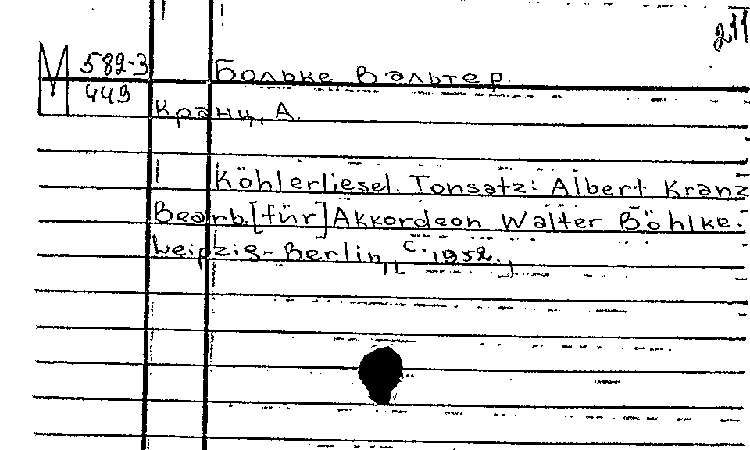 211
М 582-3
449
Больке Вальтер.
Кранц, А.
Köhlerliesel. Tonsatz: Albert Kranz
Bearb. [für] Akkordeon Walter Böhlke.
Leipzig-Berlin, [c. 1952.]